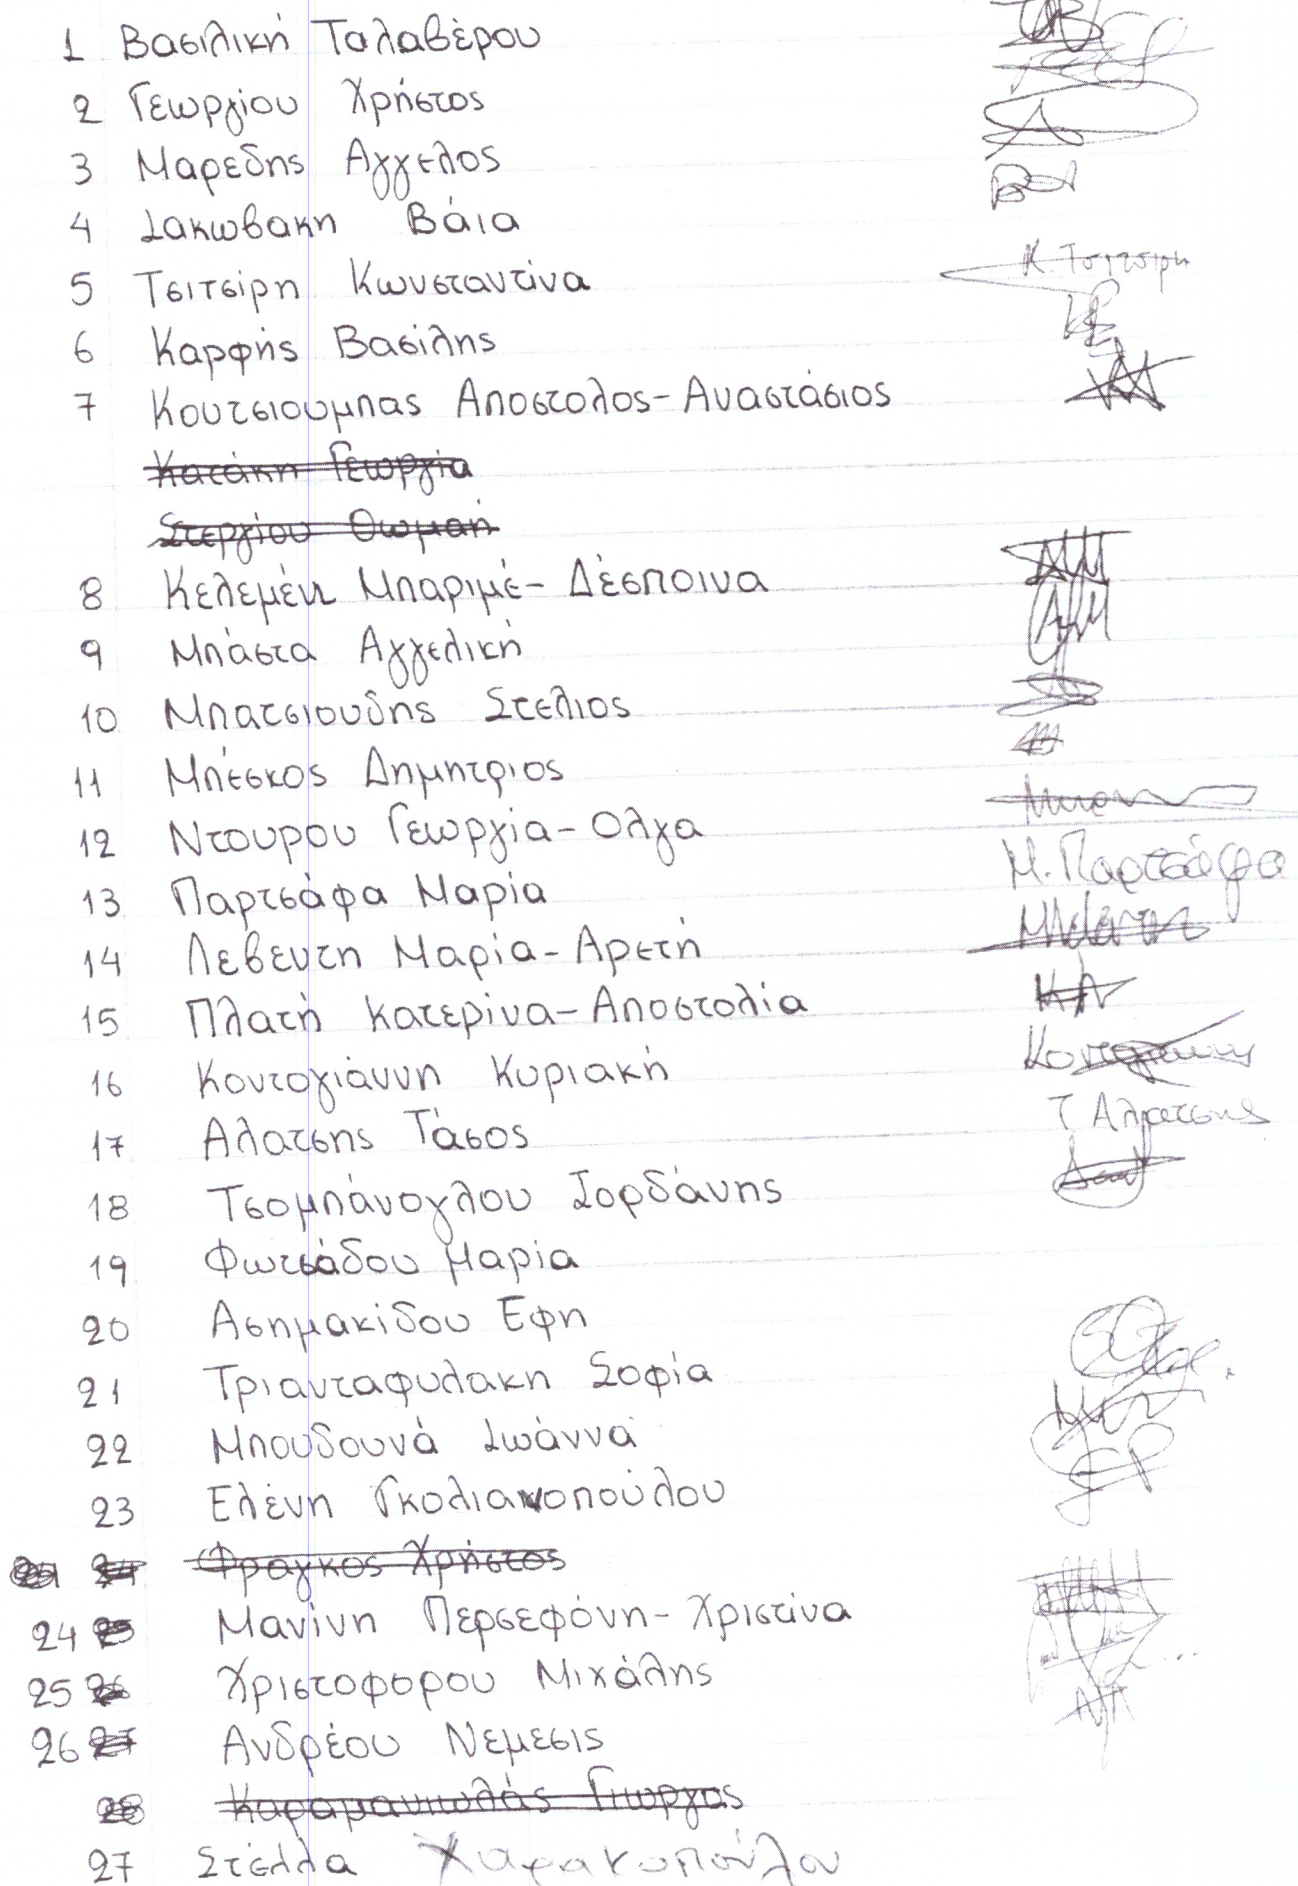 1 Βασιλική Ταλαβέρου
2 Γεωργίου Χρήστος
3 Μαρεδης Αγγελος
4 Ιακωβακη Βάια
5 Τσιτσίρη Κωνσταντίνα
Κ. Τσιτσιρη
6 Καρφής Βασίλης
7 Κουτσιουμπας Αποστολος-Αναστάσιος
Κατάκη Γεωργία
Στεργίου Θωμαή
8 Κελεμέν Μπαριμέ-Δέσποινα
9 Μπάστα Αγγελική
10 Μπατσιουδης Στελιος
11 Μπέσκος Δημητριος
12 Ντουρου Γεωργία-Ολγα
13 Παρτσάφα Μαρία
Μ. Παρτσάφα
14 Λεβεντη Μαρία-Αρετή
15 Πλατή Κατερίνα-Αποστολία
16 Κοντογιάννη Κυριακή
17 Αλατσης Τάσος
Τ Αλατσης
18 Τσομπάνογλου Ιορδάνης
19 Φωτιάδου Μαρία
20 Ασημακίδου Εφη
21 Τριανταφυλακη Σοφία
22 Μπουδουνά Ιωάννα
23 Ελένη Γκολιανοπούλου
Φραγκος Χρήστος
24 Μανίνη Περσεφόνη-Χριστίνα
25 Χριστοφορου Μιχάλης
26 Ανδρέου Νεμεσις
Καραμανωλάς Γιωργος
27 Στέλλα Χαρακοπούλου